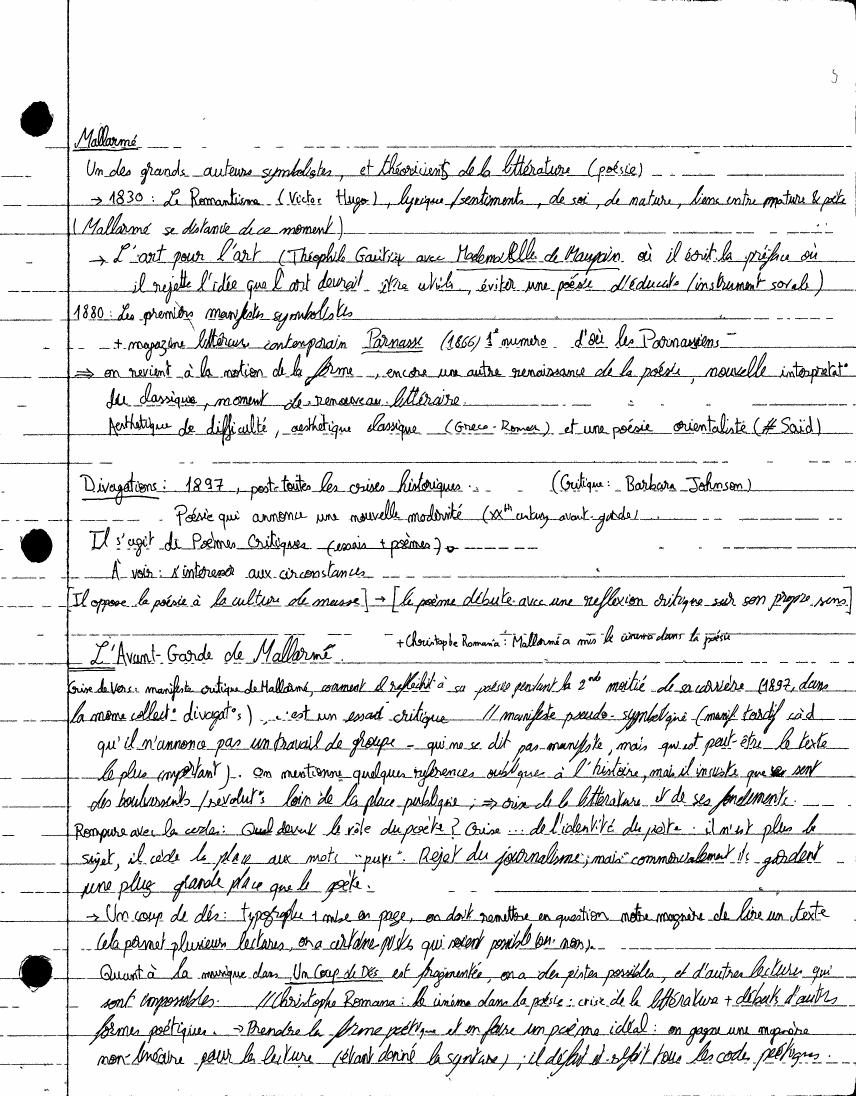 5
Mallarmé
Un des grands auteurs symbolistes, et théoriciens de la littérature (poésie)
→ 1830 : Le Romantisme (Victor Hugo), lyrique/sentiments, de soi, de nature, liens entre nature & poète
(Mallarmé se distancie de ce moment)
→ L'art pour l'art (Théophile Gautier avec Mademoiselle de Maupin où il écrit la préface où
il rejette l'idée que l'art devrait être utile, éviter une poésie d'éducato /instrument sociale)
1880 : Les premiers manifestes symbolistes
+ magazine littéraire contemporain Parnasse (1866) 1° numero d'où les Parnassiens
⇒ on revient à la notion de la forme, encore une autre renaissance de la poésie, nouvelle interpretat°
du classique, moment de renouveau littéraire.
Aesthétique de difficulté, aesthétique classique (Greco-Roman) et une poésie orientaliste (# Said)
Divagations : 1897, post-toutes les crises historiques. (Critique : Barbara Johnson)
Poésie qui annonce une nouvelle modernité (XXth century avant-garde)
Il s'agit de Poèmes Critiques (essais + poèmes).
À voir : s'interesse aux circonstances
[Il oppose la poésie à la culture de masse] → [le poème débute avec une reflexion critique sur son propre sens]
+ Christophe Romana : Mallarmé a mis le cinema dans la poésie
L'Avant-Garde de Mallarmé
Crise de Vers : manifeste critique de Mallarmé, comment il reflechit à sa poésie pendant la 2nde moitié de sa carrière (1897, dans
la meme collect° divagat°s), c'est un essai critique // manifeste pseudo-symboliqué (manif tardif càd
qu'il n'annonce pas un travail de groupe - qui ne se dit pas manifeste, mais qui est peut-être le texte
le plus important). On mentionne quelques references obliques à l'histoire, mais il insiste que ce sont
des boulversents /revolut°s loin de la place publique ; ⇒ crise de la littérature et de ses fondements.
Rompure avec la code : Quel devient le rôle du poète ? Crise ... de l'identité du poète : il n'est plus le
sujet, il cède la place aux mots "purs". Rejet du journalisme ; mais commercialement ils gardent
une plus grande place que le poète.
→ Un coup de dés : typographie + mise en page, on doit remettre en question notre magnère de lire un texte
Cela permet plusieurs lectures, on a certaines pistes qui seront possible (ou non).
Quant à la musique dans Un Coup de Dés est fragmentée, on a des pistes possibles, et d'autres lectures qui
sont impossibles. // Christophe Romana : le cinéma dans la poésie : crise de la littérature + débuts d'autres
formes poétiques. → Prendre la forme poétique et en faire un poème idéal : on gagne une magnière
non-linéaire pour la lecture (étant donné la syntaxe) ; il défait et refait tous les codes poétiques.